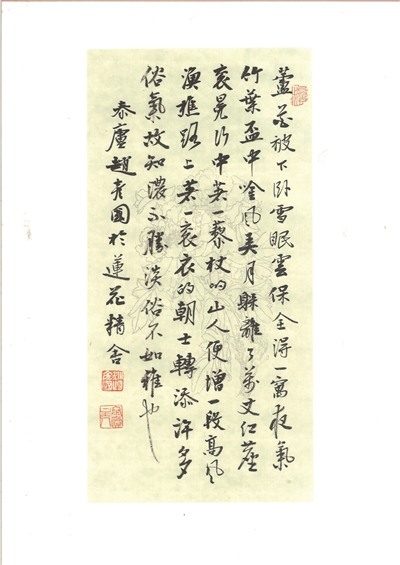 蘆花被下臥雪眠雲保全得一窩夜氣
竹葉盃中吟風弄月躲離了萬丈紅塵
衮冕行中著一藜杖的山人便增一段高風
漁樵路上著一衮衣的朝士轉添許多
俗氣故知濃不勝淡俗不如雅也
泰廬趙於蓮花精舍